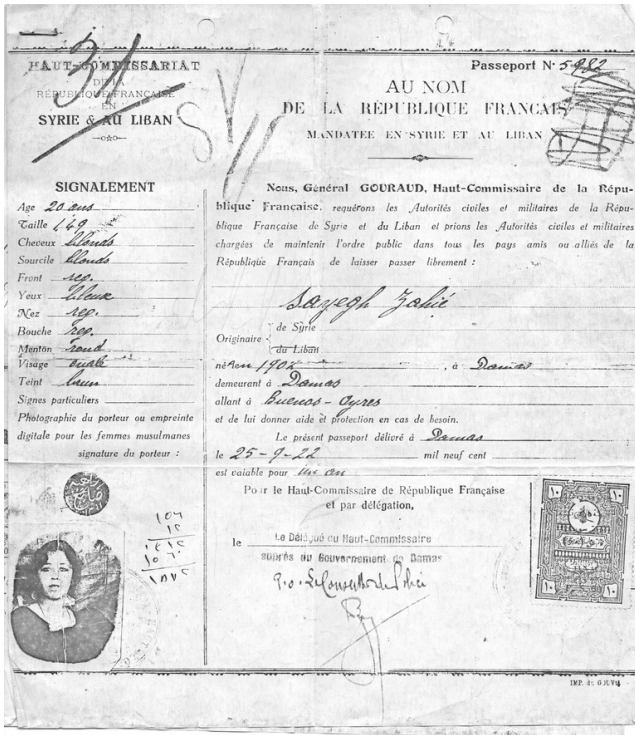 31
HAUT-COMMISSARIAT
DE LA
RÉPUBLIQUE FRANÇAISE
EN
SYRIE & AU LIBAN
SIGNALEMENT
Age 20 ans
Taille 1'49
Cheveux blonds
Sourcile blonds
Front reg.
Yeux bleux
Nez reg.
Bouche reg.
Menton rond
Visage ovale
Teint brun
Signes particuliers
Photographie du porteur ou empreinte
digitale pour les femmes musulmanes
signature du porteur :
١٥٦
١٥٧٢
Passeport N° 5982
AU NOM
DE LA RÉPUBLIQUE FRANÇAIS
MANDATEE EN SYRIE ET AU LIBAN
Nous, Général GOURAUD, Haut-Commissaire de la Répu-
blique Française, requérons les Autorités civiles et militaires de la Répu-
blique Française de Syrie et du Liban et prions les Autorités civiles et militaires
chargées de maintenir l'ordre public dans tous les pays amis ou alliés de la
République Français de laisser passer librement :
Sayegh Zahié
Originaire de Syrie
du Liban
né en 1902, à Damas
demeurant à Damas
allant à Buenos-Ayres
et de lui donner aide et protection en cas de besoin.
Le présent passeport délivré à Damas
le 25-9-22 mil neuf cent
est vaiable pour un an
Pour le Haut-Commissaire de République Française
et par délégation,
le Le Délégué du Haut-Commissaire
auprès du Gouvernement de Damas
p.o. Le Conseiller de
١٠ ١٠
١٠ ١٠
IMP. de G